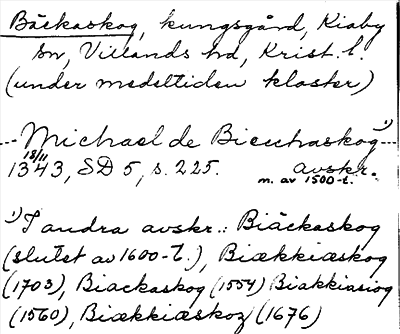 Bäckaskog, kungsgård, Kiaby
sn, Villands hd, Krist. l.
(under medeltiden kloster)
---Michael de Biecchaskog¹⁾---
18/11
1343, SD 5, s. 225. avskr.
m. av 1500-t.
¹⁾I andra avskr.: Biäckaskog
(slutet av 1600-t.), Biækkiæskog
(1703), Biackaskog (1554) Biakkiasiog
(1560), Biækkiæskoz (1676)